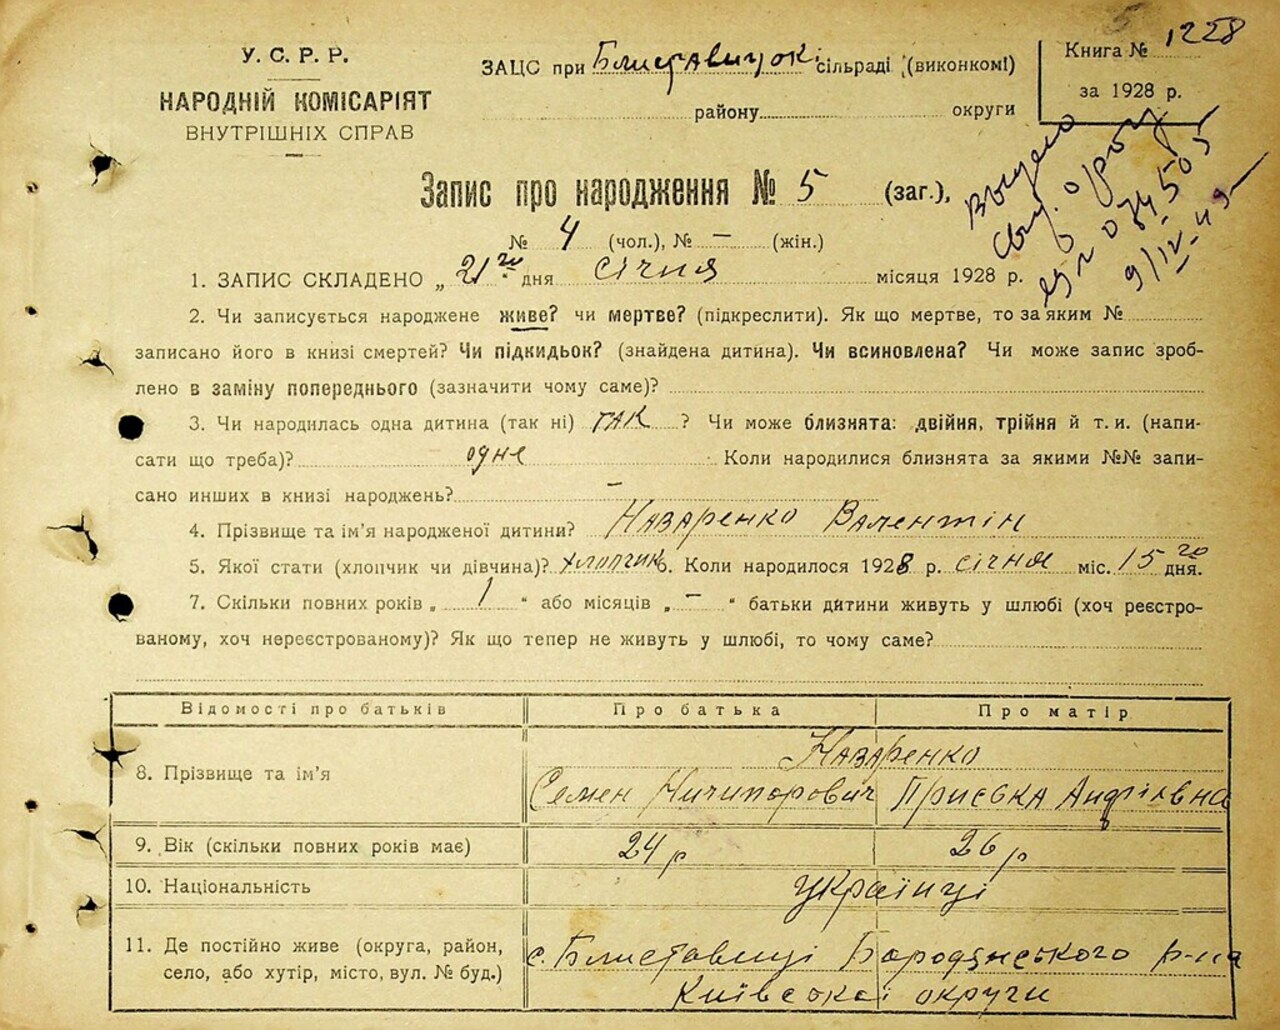 У. С. Р. Р.
НАРОДНІЙ КОМІСАРІЯТ
ВНУТРІШНІХ СПРАВ
ЗАЦС при Блиставицькій сільраді (виконкомі)
району округи
Книга № 1228
за 1928 р.
Выдано
свид. о рожд
079505
9/IX-49
Запис про народження № 5 (заг.),
№ 4 (чол.), № — (жін.)
1. ЗАПИС СКЛАДЕНО „ 21го “ дня січня місяця 1928 р.
2. Чи записується народжене живе? чи мертве? (підкреслити). Як що мертве, то за яким №
записано його в книзі смертей? Чи підкидьок? (знайдена дитина). Чи всиновлена? Чи може запис зроб-
лено в заміну попереднього (зазначити чому саме)?
3. Чи народилась одна дитина (так ні) так ? Чи може близнята: двійня, трійня й т. и. (напи-
сати що треба)? одне Коли народилися близнята за якими №№ запи-
сано инших в книзі народжень? —
4. Прізвище та ім'я народженої дитини? Назаренко Валентін
5. Якої стати (хлопчик чи дівчина)? хлопчик 6. Коли народилося 1928 р. січня міс. 15го дня.
7. Скільки повних років „ 1 “ або місяців „ — “ батьки дитини живуть у шлюбі (хоч реєстро-
ваному, хоч нереєстрованому)? Як що тепер не живуть у шлюбі, то чому саме?
Відомості про батьків Про батька Про матір
8. Прізвище та ім'я Назаренко
Семен Ничипорович Приська Андріївна
9. Вік (скільки повних років має) 24 р 26 р
10. Національність українці
11. Де постійно живе (округа, район,
село, або хутір, місто, вул. № буд.)
с. Блиставиці Бородянського р-на
Київської округи